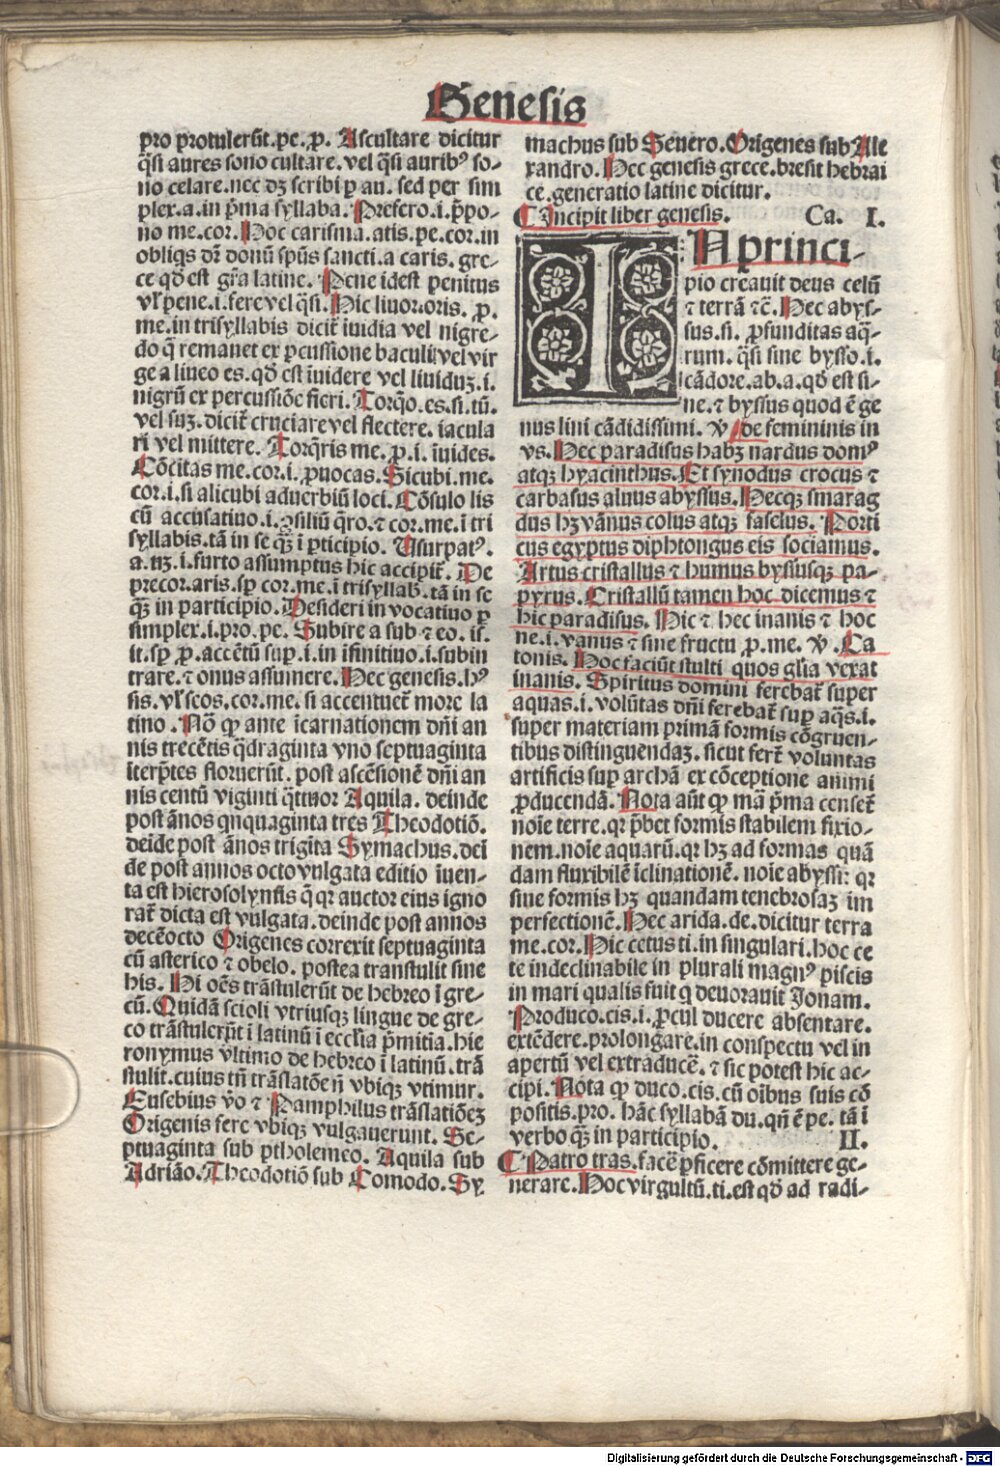 Genesis
pro protulerūt.pe.ꝓ. Ascultare dicitur
q̄si aures sono cultare.vel q̄si auribꝰ so-
no celare.nec dꝫ scribi ꝑ au. sed per sim
plex.a.in p̄ma syllaba. Prefero.i.p̄po-
no me.cor. Hoc carisma.atis.pe.cor.in
obliqs dr̄ donū spūs sancti.a caris. gre-
ce qd̄ est gr̄a latine. Pene idest penitus
vl' pene.i.fere vel q̄si. Hic liuor.oris. ꝓ.
me.in trisyllabis dicit̄ īuidia vel nigre-
do q̄ remanet ex ꝑcussione baculi vel vir
ge a liueo es.qd̄ est īuidere vel liuiduꝫ.i.
nigrū ex percussiōe fieri. Torq̄o.es.si.tū.
vel suꝫ.dicit̄ cruciare vel flectere. iacula
ri vel mittere. Torq̄ris me.ꝓ.i.īuides.
Cōcitas me.cor.i.ꝓuocas. Sicubi.me.
cor.i.si alicubi aduerbiū loci. Cōsulo lis
cū accusatiuo.i.ꝯsiliū q̄ro.⁊ cor.me.ī tri
syllabis.tā in se q̄ꝫ ī ꝑticipio. Usurpatꝰ.
a.nꝫ.i.furto assumptus hic accipit̄. De
precor.aris.sꝑ cor.me.ī trisyllab̄.tā in se
q̄ꝫ in participio. Desideri in vocatiuo ꝑ
simplex.i.pro.pe. Subire a sub ⁊ eo.is.
it.sꝑ ꝓ.accētū suꝑ.i.in īfinitiuo.i.subin
trare.⁊ onus assumere. Hec genesis.hꝰ
sis.vl' seos.cor.me.si accentuet̄ more la
tino. Nō ꝙ ante īcarnationem dn̄i an
nis trecētis q̄draginta vno septuaginta
īterp̄tes floruerūt. post ascēsionē dn̄i an
nis centū viginti q̄ttuor Aquila. deinde
post ānos qnquaginta tres Theodotiō.
deīde post ānos trigīta Symachus.deī
de post annos octo vulgata editio īuen-
ta est hierosolymis q̄ qr auctor eius igno
rat̄ dicta est vulgata.deinde post annos
decēocto Origenes correxit septuaginta
cū asterico ⁊ obelo. postea transtulit sine
his. Hi oēs trāstulerūt de hebreo ī gre-
cū. Quidā scioli vtriusqꝫ lingue de gre-
co trāstulerūt ī latinū ī ecclīa p̄mitia.hie
ronymus vltimo de hebreo ī latinū.trā
stulit.cuius tn̄ trāslatōe n̄ vbiqꝫ vtimur.
Eusebius v̄o ⁊ Pamphilus trāslatiōeꝫ
Origenis fere vbiqꝫ vulgauerunt. Se-
ptuaginta sub ptholemeo. Aquila sub
Adriāo. Theodotiō sub Comodo. Sy
machus sub Seuero. Origenes sub Ale
xandro. Hec genesis grece.bresit hebrai
ce.generatio latine dicitur.
Incipit liber genesis. Ca. I.
IN princi-
pio creauit deus celū
⁊ terrā ⁊c̄. Hec abys-
sus.si. ꝓfunditas aq̄-
rum. q̄si sine bysso.i.
cādore.ab.a.qd̄ est si-
ne.⁊ byssus quod ē ge
nus lini cādidissimi. V̄ de femininis in
vs. Hec paradisus habꝫ nardus domꝰ
atqꝫ hyacinthus. Et synodus crocus ⁊
carbasus alnus abyssus. Hecqꝫ smarag
dus hꝫ vānus colus atqꝫ faselus. Porti
cus egyptus diphtongus eis sociamus.
Artus cristallus ⁊ humus byssusqꝫ pa-
pyrus. Cristallū tamen hoc dicemus ⁊
hic paradisus. Hic ⁊ hec inanis ⁊ hoc
ne.i.vanus ⁊ sine fructu ꝓ.me. V̄. Ca
tonis. Hoc faciūt stulti quos gl'ia vexat
inanis. Spiritus domini ferebat̄ super
aquas.i.volūtas dn̄i ferebat̄ suꝑ aq̄s.i.
super materiam primā formis cōgruen-
tibus distinguendaꝫ.sicut fert̄ voluntas
artificis suꝑ archā ex cōceptione animi
ꝓducendā. Nota aūt ꝙ mā p̄ma censet̄
noīe terre.qr p̄bet formis stabilem fixio-
nem.noīe aquarū.qr hꝫ ad formas quā
dam fluxibilē īclinationē. noīe abyssi: qr
sine formis hꝫ quandam tenebrosaꝫ im
perfectionē. Hec arida.de.dicitur terra
me.cor. Hic cetus ti.in singulari.hoc ce
te indeclinabile in plurali magnꝰ piscis
in mari qualis fuit q deuorauit Jonam.
Produco.cis.i.ꝓcul ducere absentare.
extēdere.prolongare.in conspectu vel in
apertū vel extraducē.⁊ sic potest hic ac-
cipi. Nota ꝙ duco.cis.cū oībus suis cō
positis.pro. hāc syllabā du.qn̄ ē pe. tā ī
verbo q̄ꝫ in participio. II.
Patro tras.facē ꝑficere cōmittere ge-
nerare. Hoc virgultū.ti.est qd̄ ad radi-
Digitalisierung gefördert durch die Deutsche Forschungsgemeinschaft - DFG